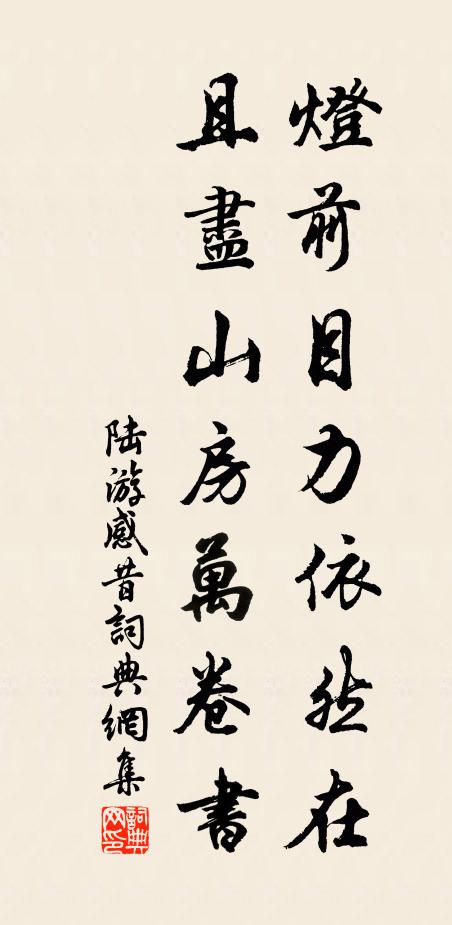 燈前目力依然在
且盡山房萬卷書
陸游感昔詞典網集
詞典
网印